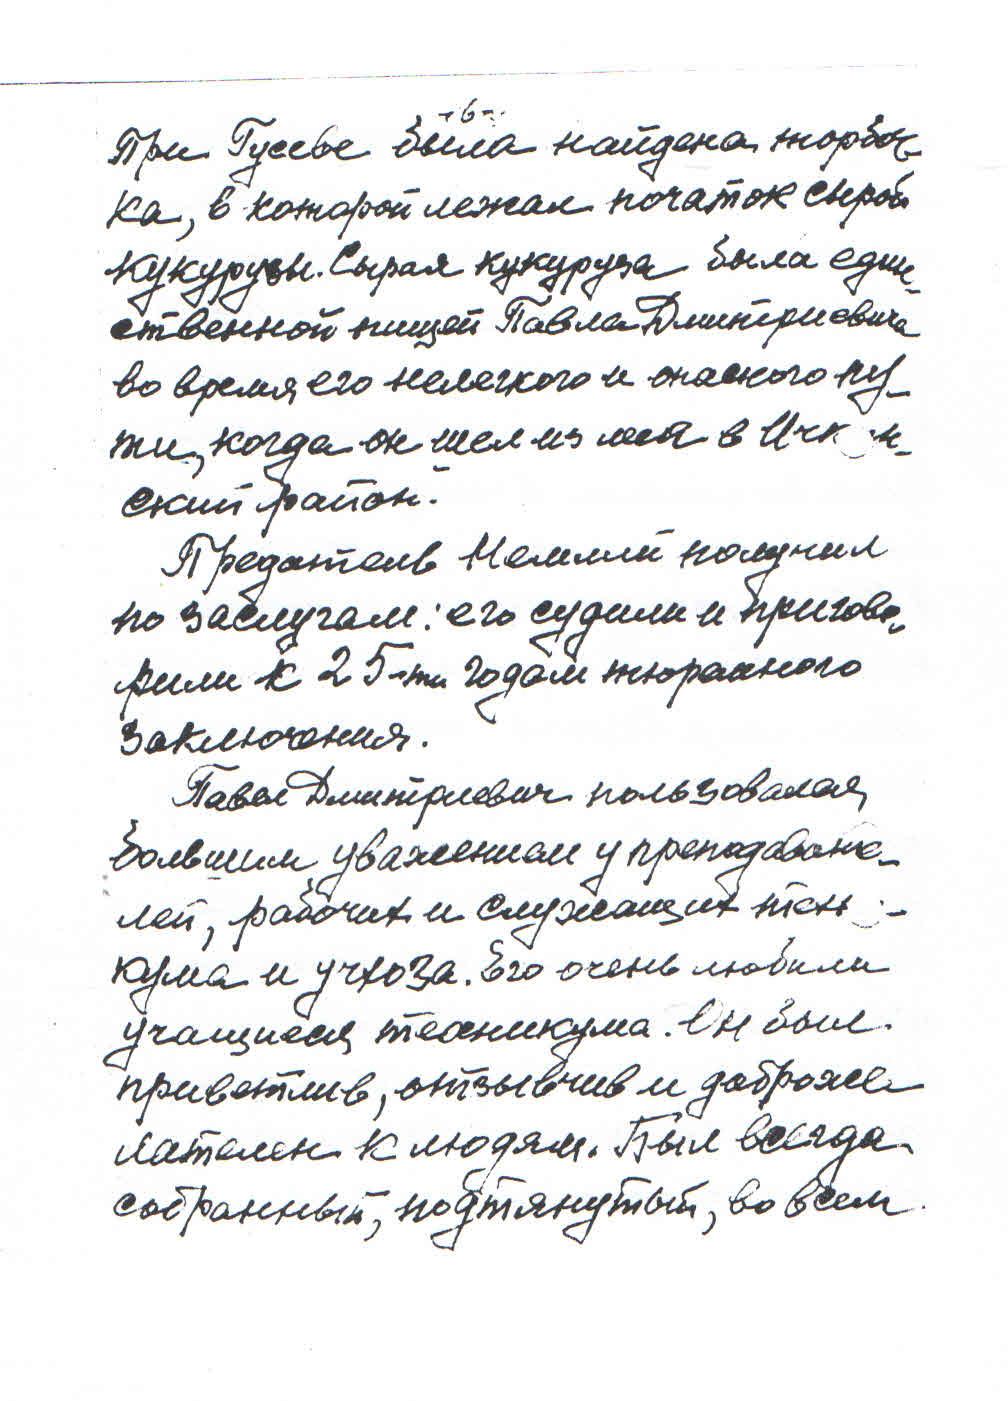 -6-
При Гусеве была найдена торбоч-
ка, в которой лежал початок сырой
кукурузы. Сырая кукуруза была един-
ственной пищей Павла Дмитриевича
во время его нелегкого и опасного пу-
ти, когда он шел из леса в Ичкин-
ский район.
Предатель получил
по заслугам: его судили и пригово-
рили к 25-ти годам тюремного
заключения.
Павел Дмитриевич пользовался
большим уважением у преподавате-
лей, рабочих и служащих техни-
кума и учхоза. Его очень любили
учащиеся техникума. Он был
приветлив, отзывчив и доброже
лателен к людям. Был всегда
собранный, подтянутый, во всем